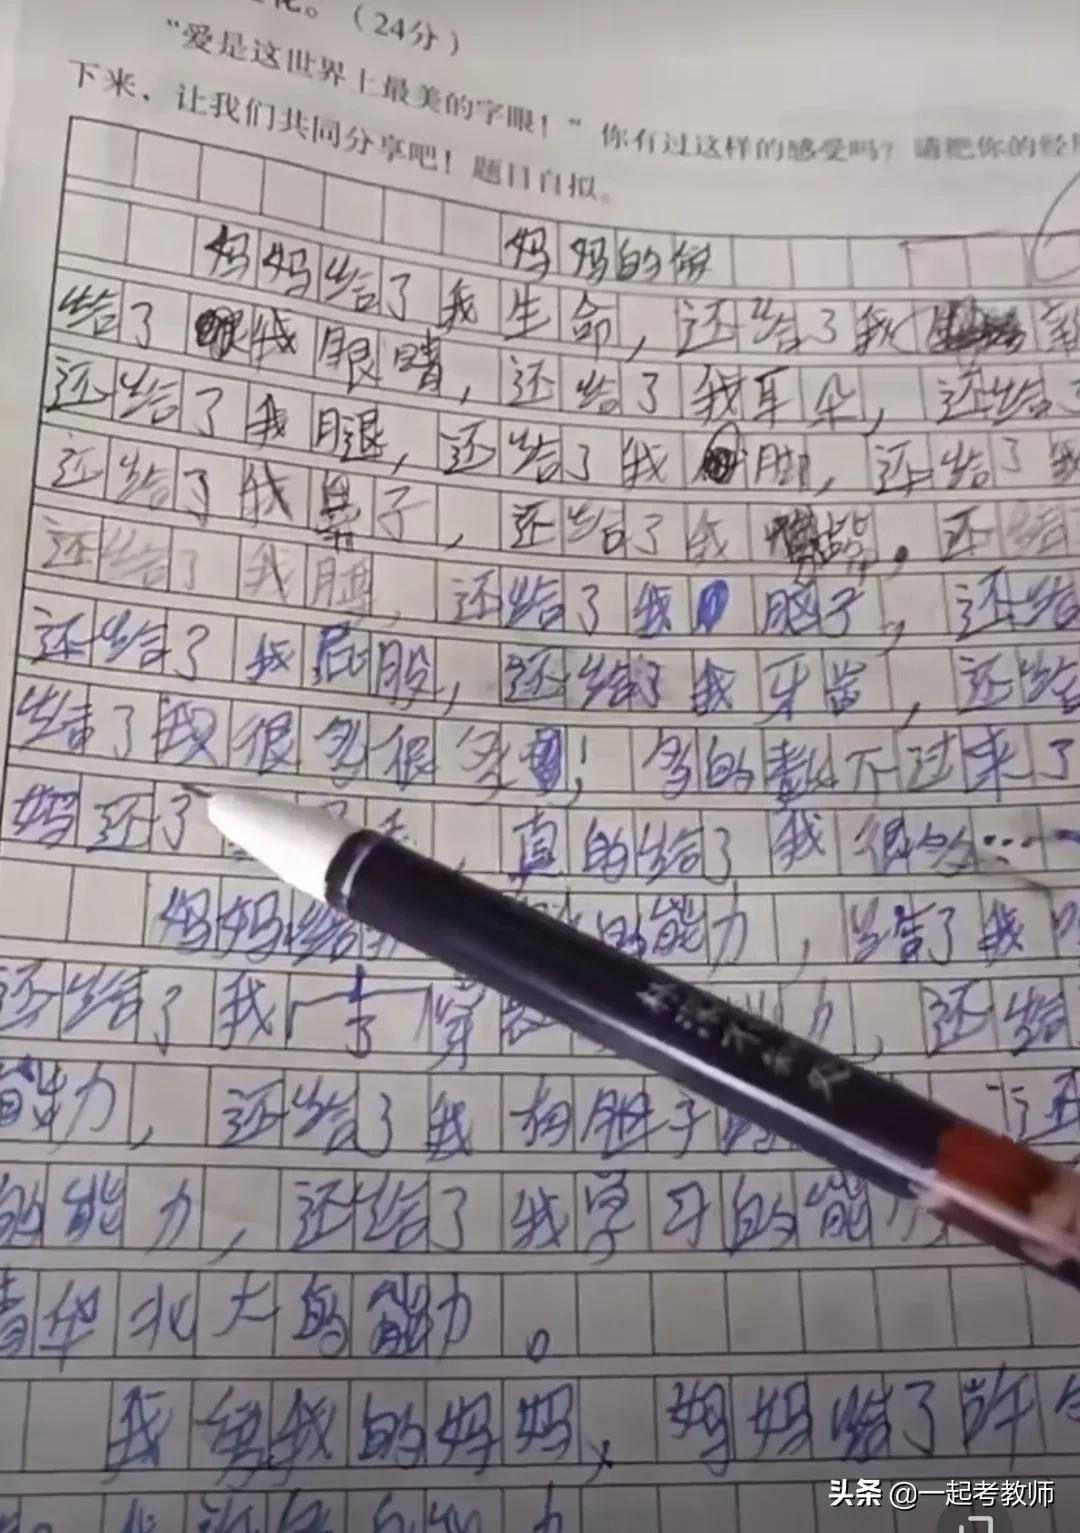 。（24分）
“爱是这世界上最美的字眼！”你有过这样的感受吗？请把你的经
下来，让我们共同分享吧！题目自拟。
妈妈的
妈妈给了我生命，还给了我
给了我眼睛，还给了我耳朵，还给了
还给了我腿，还给了我脚，还给了我
还给了我鼻子，还给了我嘴，还给
还给了我脖，还给了我脑子，还给
还给了我屁股，还给了我牙齿，还给
给了我很多很多！多的数不过来了
妈还了 真的给了我很多……
妈妈给 的能力，给了我
还给了我 穿 力，还给
能力，还给了我 胆子 还
的能力，还给了我学习的能力
清华北大的能力。
我 我的妈妈，妈妈给了许
头条 @一起考教师